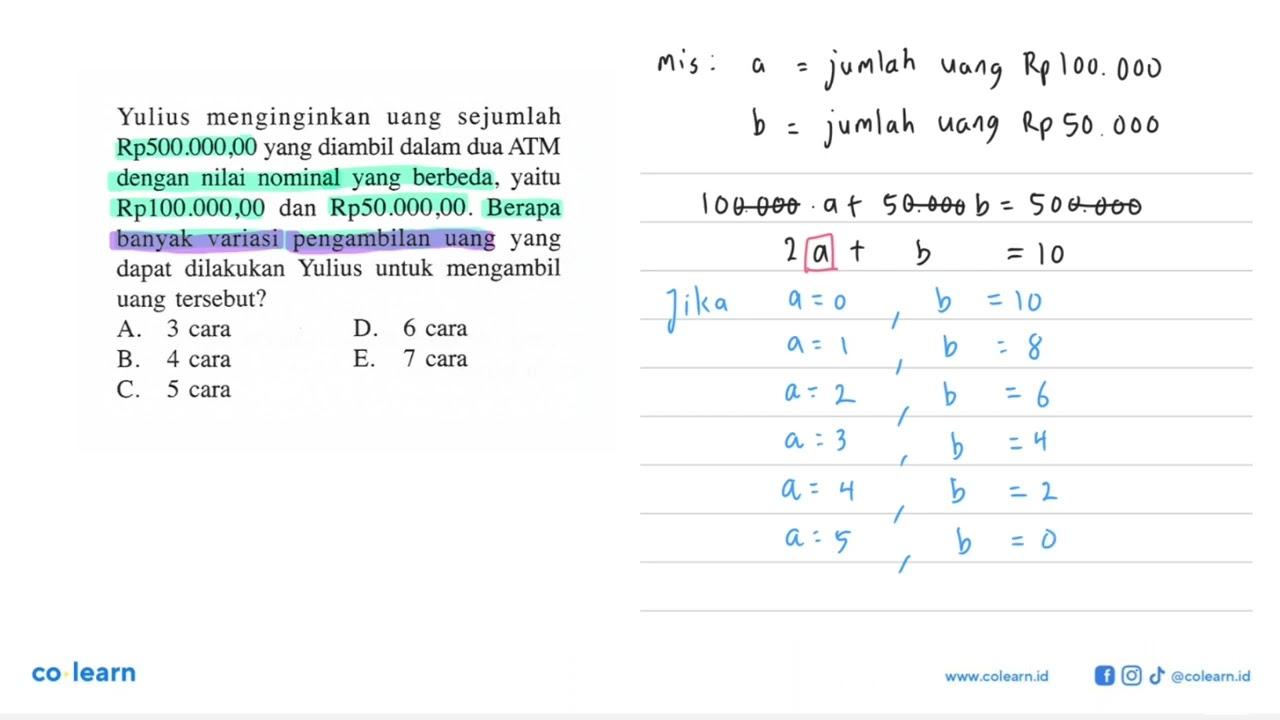 Yulius menginginkan uang sejumlah
Rp500.000,00 yang diambil dalam dua ATM
dengan nilai nominal yang berbeda, yaitu
Rp100.000,00 dan Rp50.000,00. Berapa
banyak variasi pengambilan uang yang
dapat dilakukan Yulius untuk mengambil
uang tersebut?
A. 3 cara
B. 4 cara
C. 5 cara
D. 6 cara
E. 7 cara
mis: a = jumlah uang Rp100.000
b = jumlah uang Rp 50.000
100.000 . a + 50.000 b = 500.000
2 a + b = 10
Jika a = 0 , b = 10
a = 1 , b = 8
a = 2 , b = 6
a = 3 , b = 4
a = 4 , b = 2
a = 5 , b = 0
co learn
www.colearn.id
@colearn.id